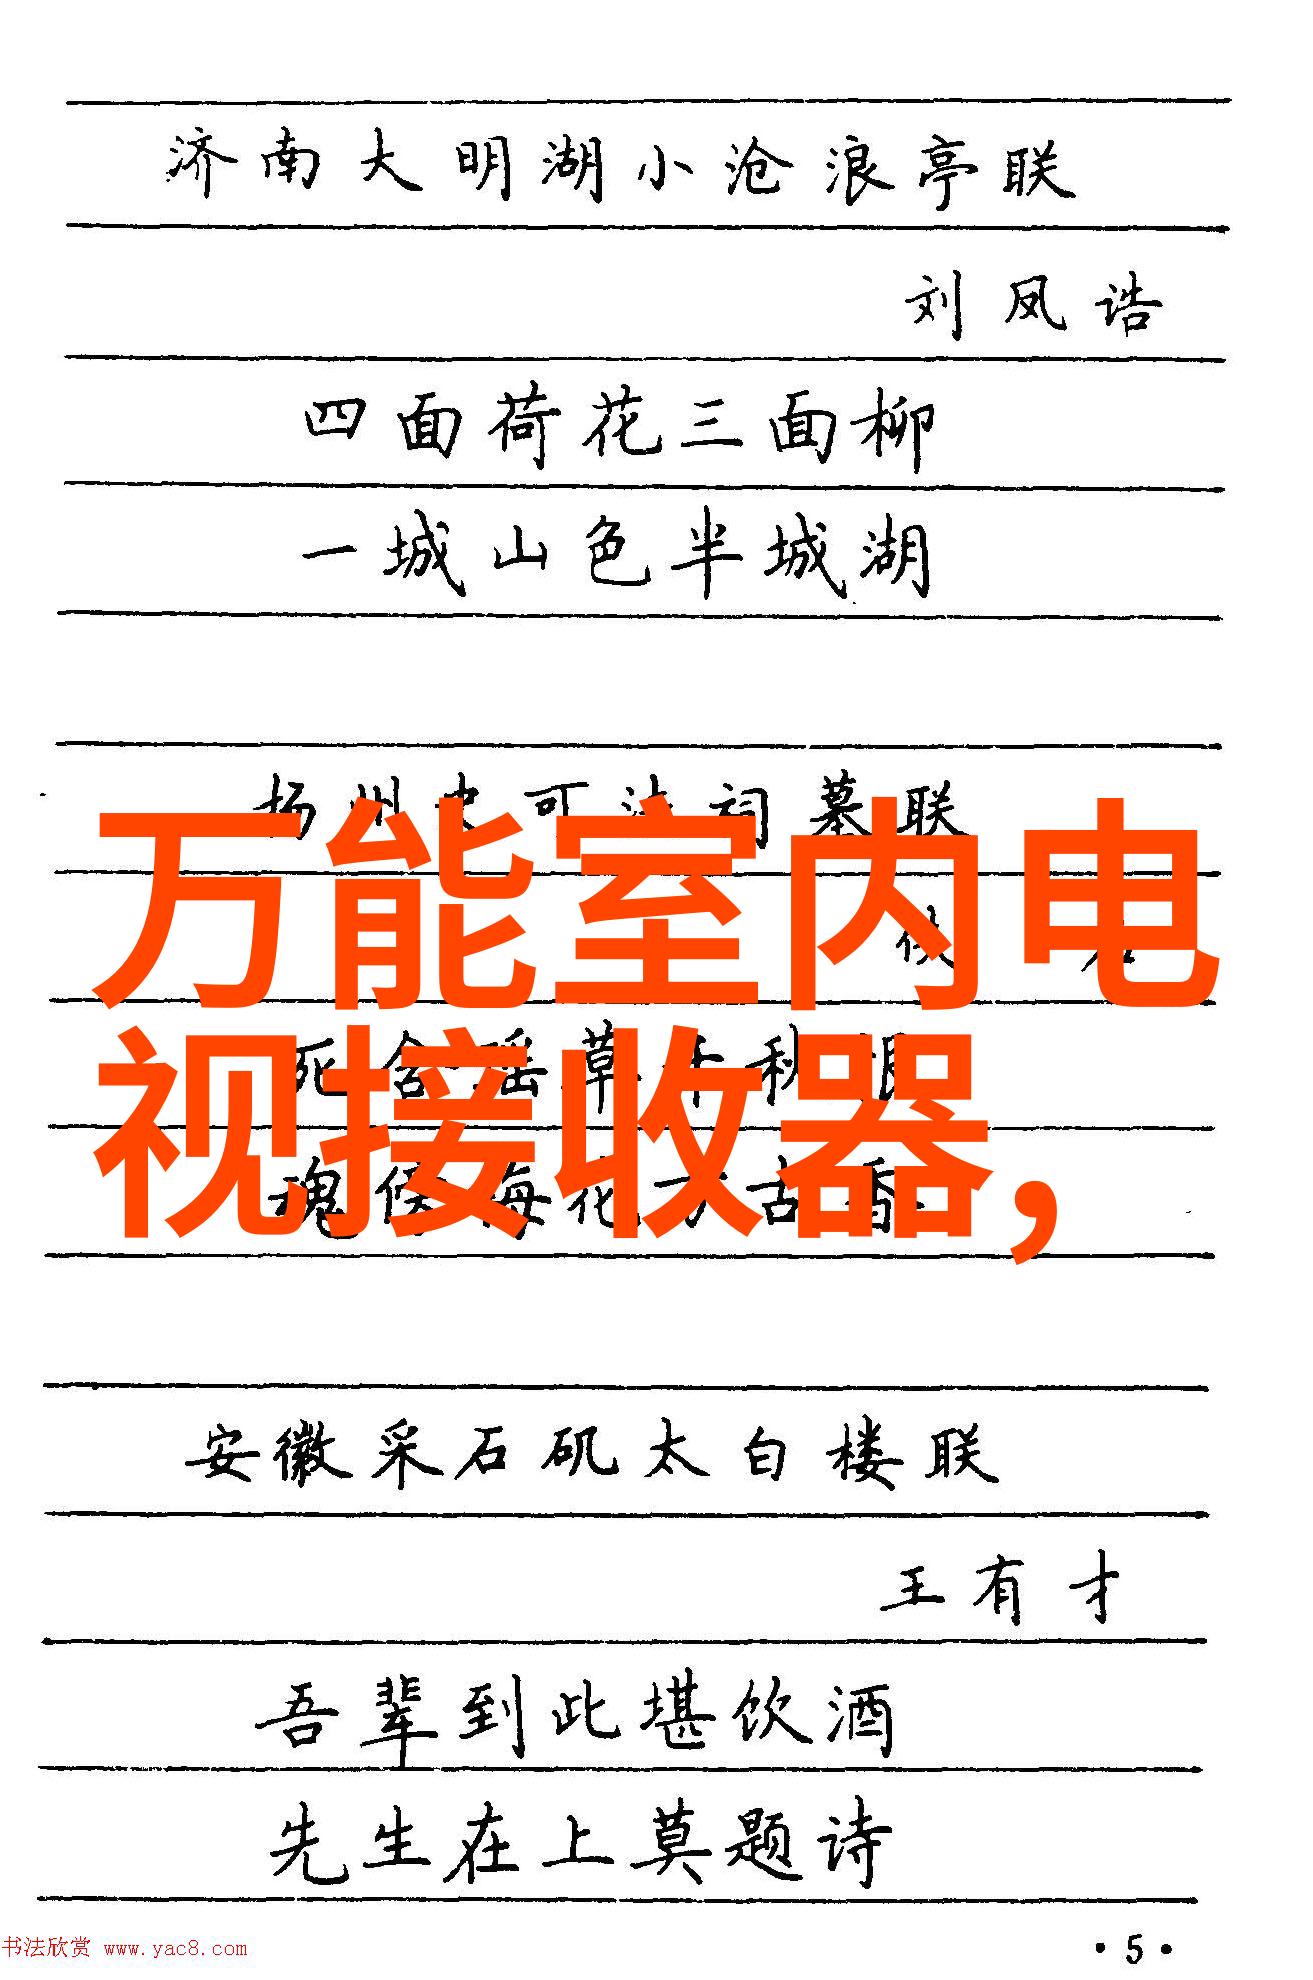 济南大明湖小沧浪亭联
刘凤诰
四面荷花三面柳
一城山色半城湖
扬州史可法祠墓联
万能室内电
视接收器，
安徽采石矶太白楼联
王有才
吾辈到此堪饮酒
先生在上莫题诗
书法欣赏 www.yac8.com
·5·